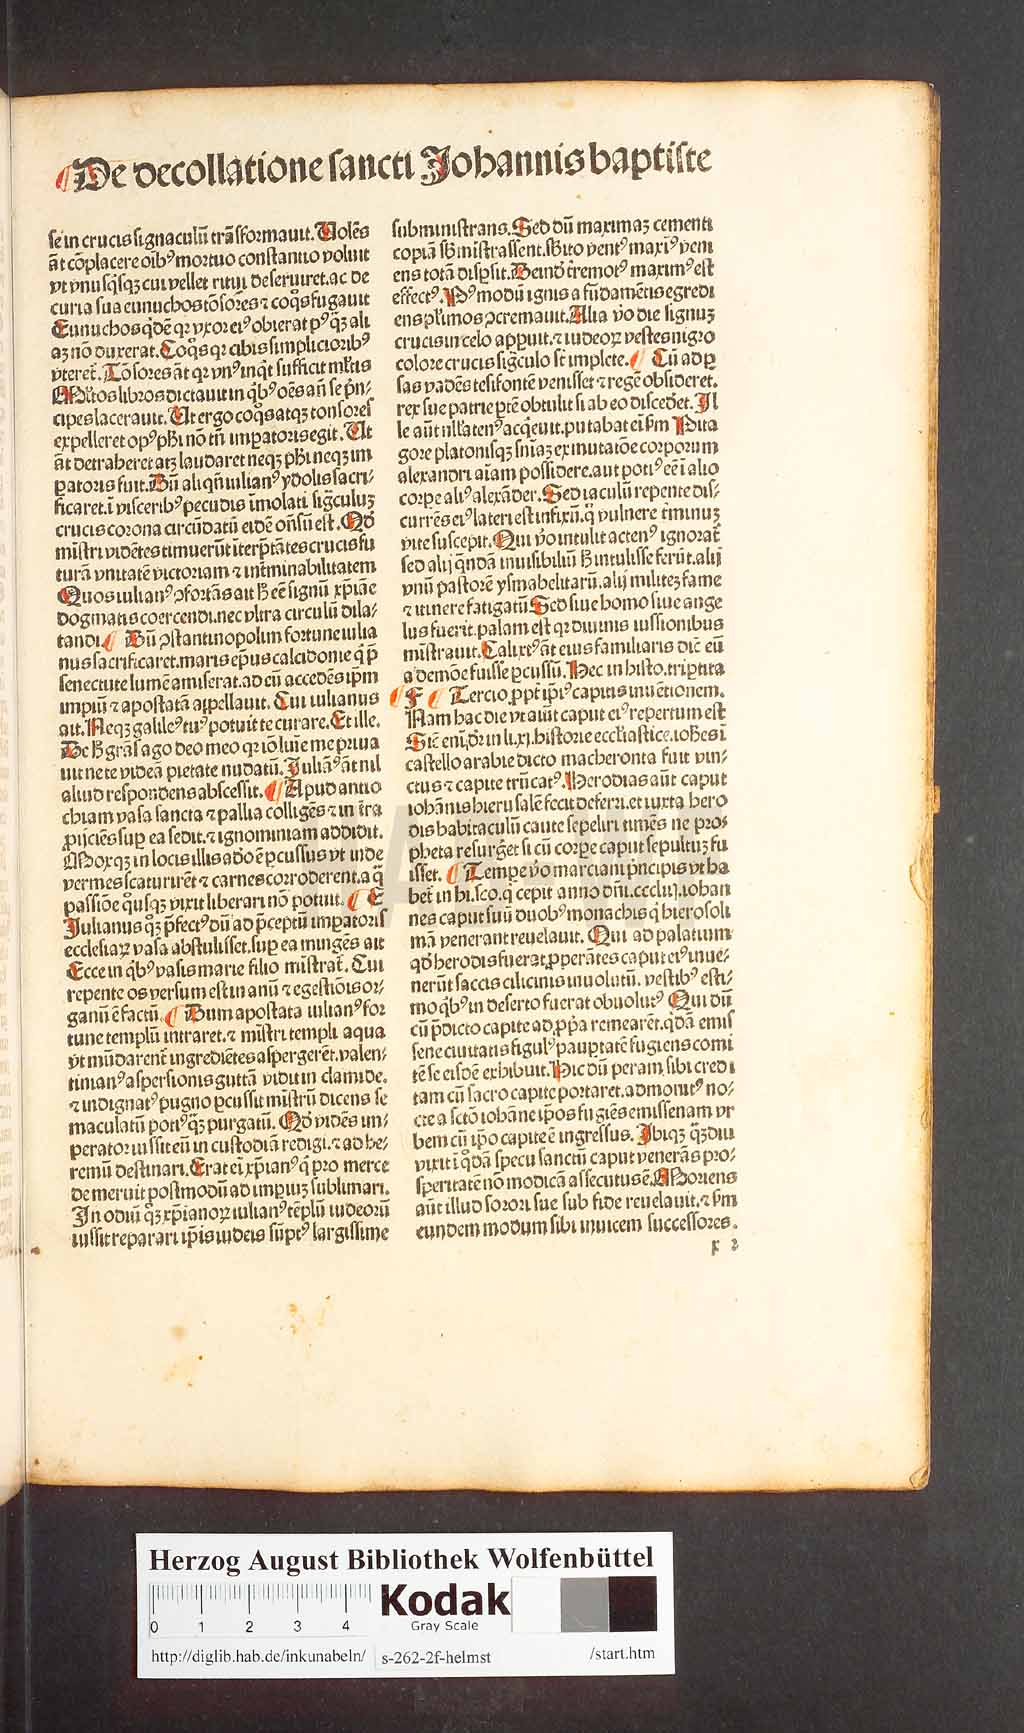 ¶ De decollatione sancti Johannis baptiste
se in crucis signaculũ trãsformauit. Uolẽs
ãt cõplacere oib⁹ mortuo constantio voluit
vt vnusq̃sqꝫ cui vellet ritui deseruiret. ac de
curia sua eunuchos tõsores ⁊ coq̃s fugauit
Eunuchos qdẽ qꝛ vxor ei⁹ obierat p⁹ qꝫ ali
aꝫ nõ duxerat. Coq̃s qꝛ cibis simplicioribꝰ
vteret̃. Tõsores ãt qꝛ vn⁹ inq̃t sufficit ml̃tis
Ml̃tos libros dictauit in qb⁹ oẽs añ se p̃n⸗
cipes lacerauit. Ut ergo coq̃s atqꝫ tonsores
expelleret op⁹ ph̃i nõ tñ imꝑatoris egit. Ut
ãt detraheret atꝫ laudaret neqꝫ ph̃i neqꝫ im
ꝑatoris fuit. Dũ aliqñ iulian⁹ ydolis sacri⸗
ficaret. ĩ viscerib⁹ pecudis ĩmolati sig̃culuꝫ
crucis corona circũdatũ eidẽ oñsũ est. Qd̃
mĩstri vidẽtes timuerũt ĩterp̃tãtes crucis fu
turã vnitatẽ victoriam ⁊ int̃minabilitatem
Quos iulian⁹ ꝯfortãs ait h̃ eẽ signũ xp̃iane
dogmatis coercendi. nec vltra circulũ dila⸗
tandi. ¶ Dũ ꝯstantinopolim fortune iulia
nus sacrificaret. maris ep̃us calcidonie q̃ p̃
senectute lumẽ amiserat. ad eũ accedẽs ip̃m
impiũ ⁊ apostatã appellauit. Cui iulianus
ait. Neqꝫ galile⁹ tu⁹ potuit te curare. Et ille.
De h̃ grãs ago deo meo qꝛ iõ luĩe me priua
uit ne te videã pietate nudatũ. Juliã⁹ ãt nil
aliud respondens abscessit. ¶ Apud antio
chiam vasa sancta ⁊ pallia colligẽs ⁊ in t̃ra
ꝓijciẽs suꝑ ea sedit. ⁊ ignominiam addidit.
Moxqꝫ in locis illis adõ ẽ ꝑcussus vt inde
vermes scaturirẽt ⁊ carnes corroderent. a q̃
passiõe q̃usqꝫ vixit liberari nõ potuit. ¶ E
Julianus qꝫ p̃fect⁹ dũ ad p̃ceptũ imꝑatoris
ecclesiaꝝ vasa abstulisset. suꝑ ea mingẽs ait
Ecce in qb⁹ vasis marie filio mĩstrat̃. Cui
repente os versum est in anũ ⁊ egestiõis or⸗
ganũ ẽ factũ. ¶ Dum apostata iulian⁹ for
tune templũ intraret. ⁊ mĩstri templi aqua
vt mũdarent̃ ingrediẽtes aspergerẽt. valen⸗
tinian⁹ aspersionis guttã vidit in clamide.
⁊ indignat⁹ pugno ꝑcussit mĩstrũ dicens se
maculatũ poti⁹ qꝫ purgatũ. Qd̃ vidẽs im⸗
perator iussit eũ in custodiã redigi. ⁊ ad he⸗
remũ destinari. Erat eĩ xp̃ian⁹ q̃ pro merce
de meruit postmodũ ad imperiuꝫ sublimari.
In odiũ qꝫ xp̃ianoꝝ iulian⁹ tẽplũ iudeorũ
iussit reparari ip̃is iudeis sũpt⁹ largissime
subministrans. Sed dũ maximaꝫ cementi
copiã sb̃ministrassent. sb̃ito vent⁹ maxi⁹ veni
ens totã disꝑsit. Deinď t̃remot⁹ maxim⁹ est
effect⁹. P⁹ modũ ignis a fũdamẽtis egredi
ens pl̃imos ꝯcremauit. Alia ṽo die signuꝫ
crucis in celo apꝑuit. ⁊ iudeoꝝ vestes nigro
colore crucis sig̃culo st̃ implete. ¶ Cũ ad ꝑ
sas vadẽs tesifontẽ venisset ⁊ regẽ obsideret.
rex sue patrie ꝑtẽ obtulit si ab eo discedet̃. Il
le aũt nll̃aten⁹ acq̃euit. putabat eĩ s̃m Pita
gore platonisqꝫ sñiaꝫ ex mutatõe corporum
alexandri aĩam possidere. aut poti⁹ eẽ ĩ alio
corꝑe ali⁹ alexãder. Sed iaculũ repente dis⸗
currẽs ei⁹ lateri est infixũ. q̃ vulnere t̃minuꝫ
vite suscepit. Qui ṽo intulit acten⁹ ignorat̃
sed alij q̃ndã inuisibiliũ h̃ intulisse ferũt. alij
vnũ pastorẽ ysmahelitarũ. alij militeꝫ fame
⁊ itinere fatigatũ. Sed siue homo siue ange
lus fuerit. palam est qꝛ diuinis iussionibus
mĩstrauit. Calixt⁹ ãt eius familiaris dic̃ eũ
a demõe fuisse ꝑcussũ. Hec in histo. triꝑtita
¶ F ¶ Tercio ꝓpt̃ ip̃i⁹ capitis inuẽtionem.
Nam hac die vt aiũt caput ei⁹ repertum est
Sic̃ eniꝫ dr̃ in li. xj. historie eccĺiastice. ioh̃es ĩ
castello arabie dicto macheronta fuit vin⸗
ctus ⁊ capite trũcat⁹. Herodias aũt caput
iohãnis hierusalẽ fecit deferri. et iuxta hero
dis habitaculũ caute sepeliri timẽs ne pro⸗
pheta resurg̃et si cũ corꝑe caput sepultuꝫ fu
isset. ¶ Tempe ṽo marciani p̃ncipis vt ha
bet̃ in hi. sco. q̃ cepit anno dñi. cccliij. iohan
nes caput suũ duob⁹ monachis q̃ hierosoli
mã venerant reuelauit. Qui ad palatium
qd̃ herodis fuerat ꝓperãtes caput ei⁹ inue⸗
nerũt saccis cilicinis inuolutũ. vestib⁹ esti⸗
mo qb⁹ in deserto fuerat obuolut⁹ Qui dũ
cũ p̃dicto capite ad ꝓp̃a remearẽt. q̃dã emis
sene ciuitatis figul⁹ pauꝑtatẽ fugiens comi
tẽ se eisdẽ exhibuit. Hic dũ peram sibi credi
tam cũ sacro capite portaret. admonit⁹ no⸗
cte a sctõ iohãne ip̃os fugiẽs emissenam vr
bem cũ ip̃o capite ẽ ingressus. Ibiqꝫ qꝫdiu
vixit ĩ q̃dã specu sanctũ caput venerãs pro⸗
speritatẽ nõ modicã assecutus ẽ. Moriens
aũt illud sorori sue sub fide reuelauit. ⁊ s̃m
eundem modum sibi inuicem successores.
x 2
Herzog August Bibliothek Wolfenbüttel
0 1 2 3 4
Kodak
Gray Scale
http://diglib.hab.de/inkunabeln/ s-262-2f-helmst /start.htm